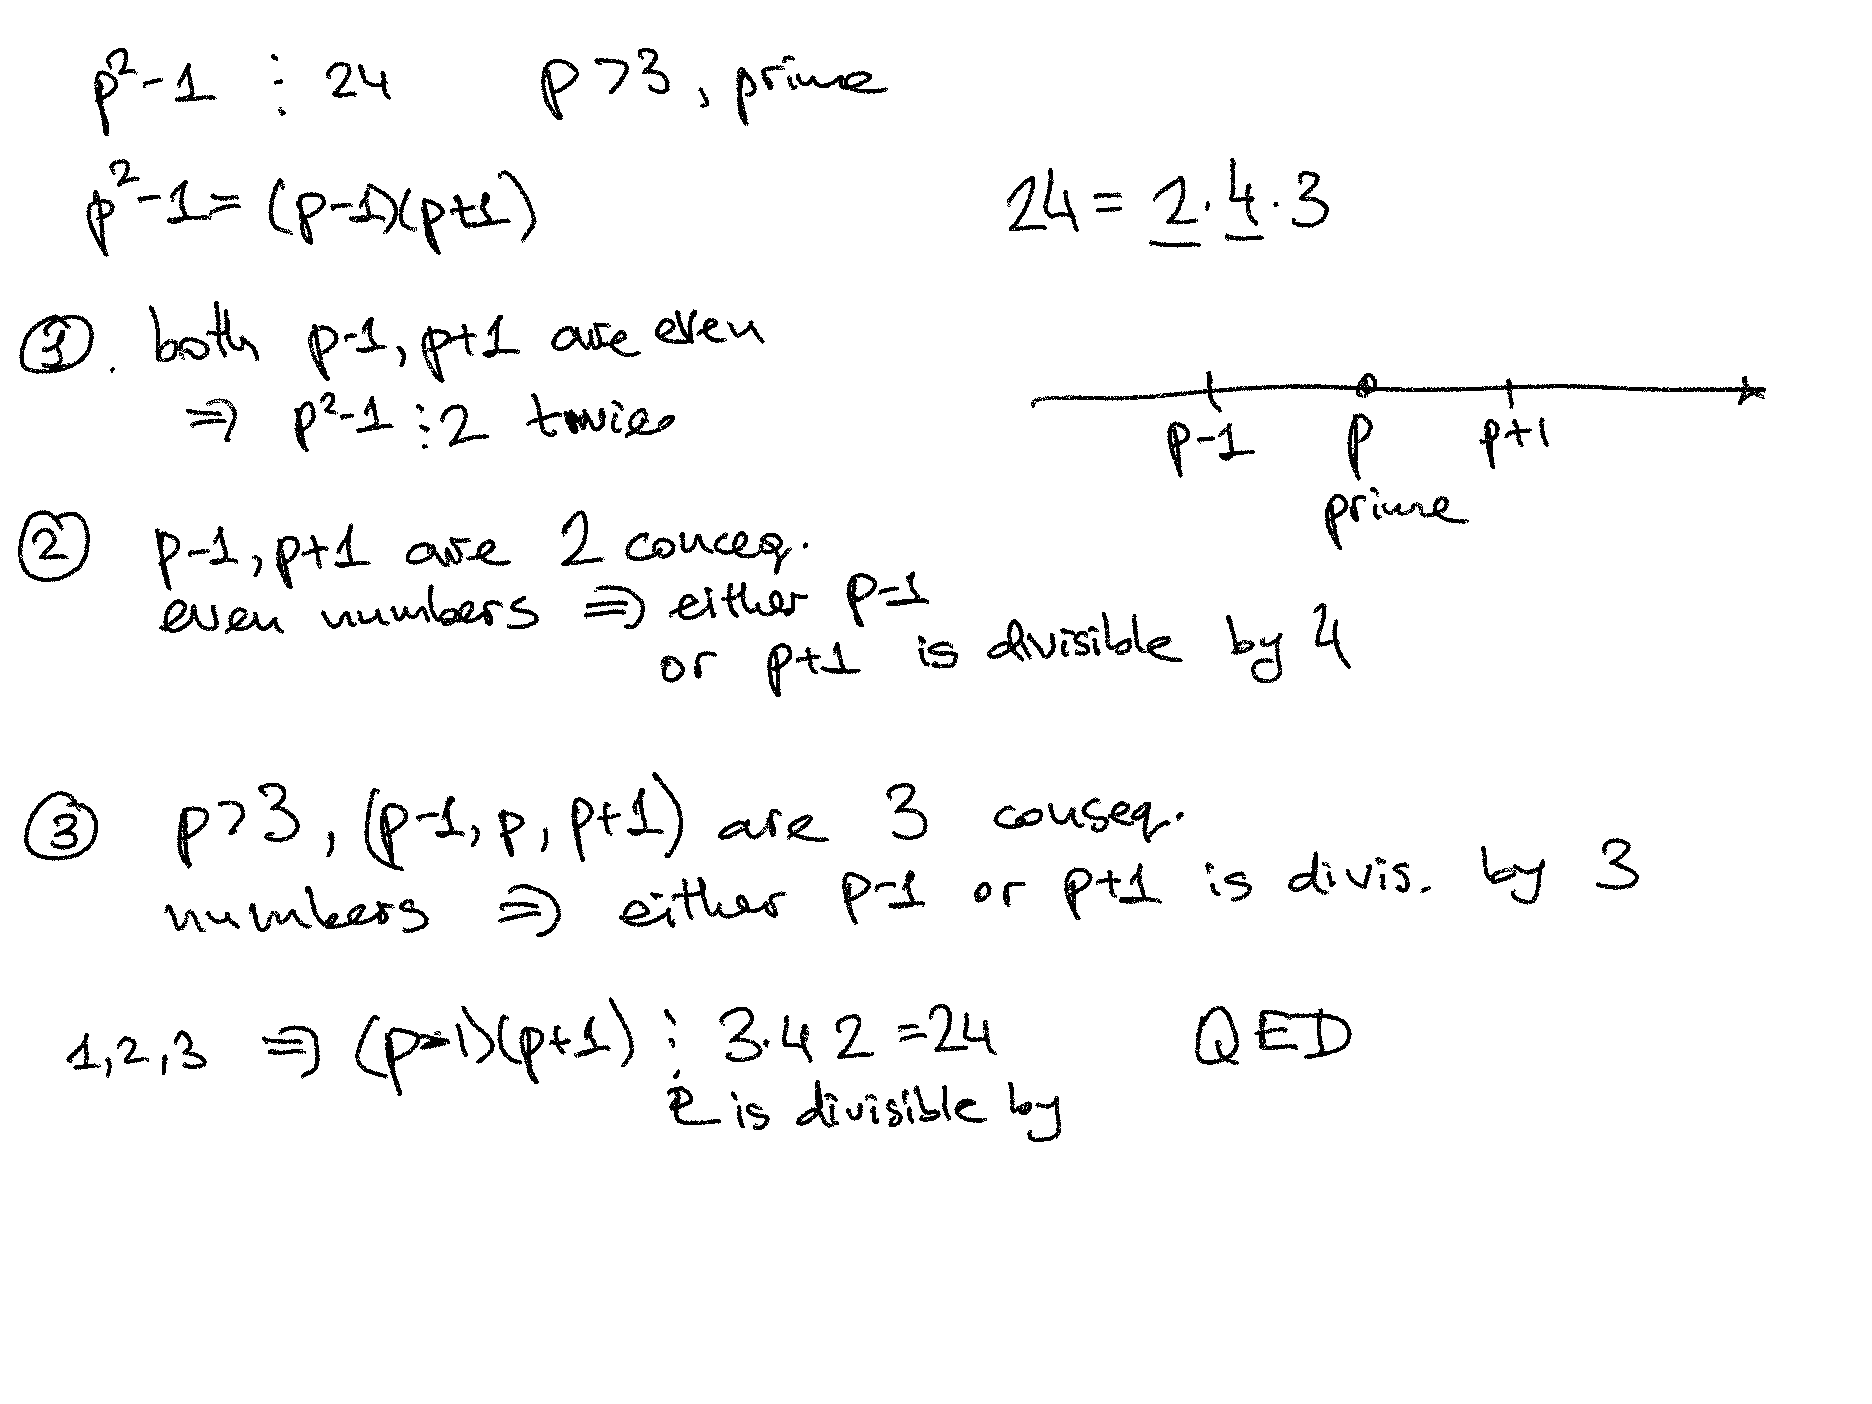 p²-1 ⋮ 24 p>3, prime
p²-1= (p-1)(p+1)
24= 2·4·3
① . both p-1, p+1 are even
⇒ p²-1 ⋮ 2 twice
p-1 p p+1
prime
② p-1, p+1 are 2 conceq.
even numbers ⇒ either p-1
or p+1 is divisible by 4
③ p>3, (p-1, p, p+1) are 3 conseq.
numbers ⇒ either p-1 or p+1 is divis. by 3
1,2,3 ⇒ (p-1)(p+1) ⋮ 3·4 2 =24 QED
is divisible by